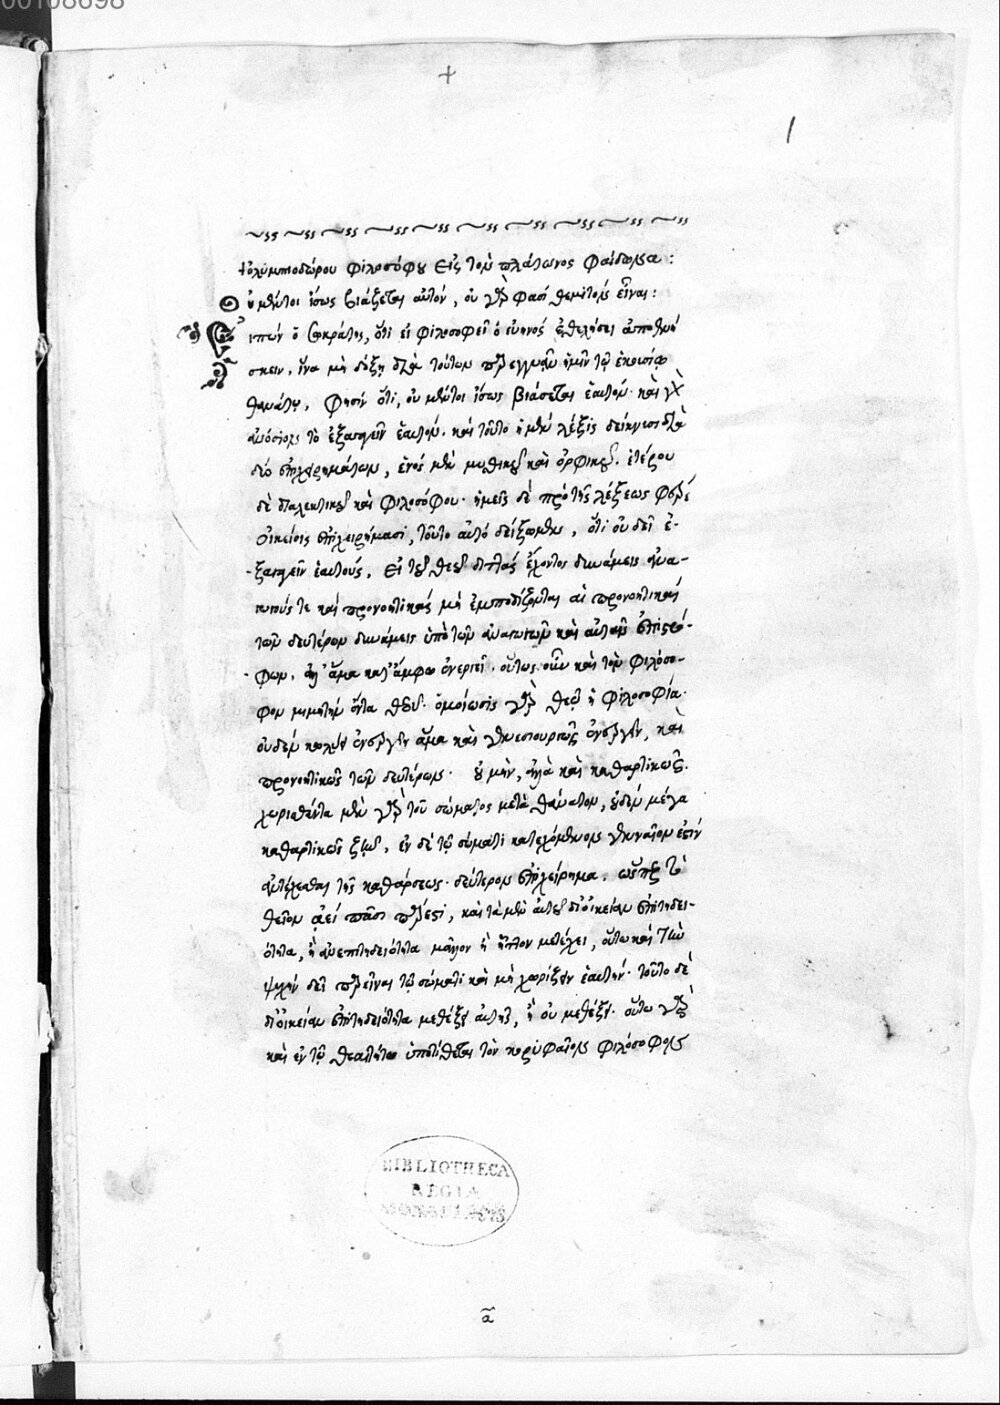 00108698
+
1
+ ὀλυμπιοδώρου φιλοσόφου εἰς τὸν πλάτωνος φαίδωνα :
οὐ μέντοι ἴσως βιάζεται αὑτόν, οὐ γὰρ φασὶ θεμιτὸν εἶναι :
Εἰπὼν ὁ σωκράτης, ὅτι εἰ φιλοσοφεῖ ὁ εὔηνος ἐθελήσει ἀποθνή
σκειν, ἵνα μὴ δόξῃ διὰ τούτων παρεγγυᾶν ἡμῖν τῷ ἑκουσίῳ
θανάτῳ, φησὶν ὅτι, οὐ μέντοι ἴσως βιάσεται ἑαυτόν. καὶ γὰρ
ἀνόσιον τὸ ἐξαγαγεῖν ἑαυτόν. καὶ τοῦτο ἡ μὲν λέξις δείκνυσι διὰ
δύο ἐπιχειρημάτων, ἑνὸς μὲν μυθικοῦ καὶ ὀρφικοῦ. ἑτέρου
δὲ διαλεκτικοῦ καὶ φιλοσόφου. ἡμεῖς δὲ πρὸ τῆς λέξεως
οἰκείοις ἐπιχειρήμασι, τοῦτο αὐτὸ δείξωμεν, ὅτι οὐ δεῖ ἐ-
-ξαγαγεῖν ἑαυτούς. εἰ τοῦ θεοῦ διττὰς ἔχοντος δυνάμεις ἀνα-
γωγούς τε καὶ προνοητικάς μὴ ἐμποδίζονται αἱ προνοητικαὶ
τῶν δευτέρων δυνάμεις ὑπὸ τῶν ἀναγωγῶν καὶ αὐτῶν ἐπιστρό-
-φων, ἀλλ' ἅμα κατ' ἄμφω ἐνεργεῖ. οὕτως οὖν καὶ τὸν φιλόσο-
φον μιμητὴν ὄντα θεοῦ. ὁμοίωσις γὰρ θεῷ ἡ φιλοσοφία.
οὐδὲν κωλύει ἐνεργεῖν ἅμα καὶ γενεσιουργῶς ἐνεργεῖν, καὶ
προνοητικῶς τῶν δευτέρων. οὐ μὴν, ἀλλὰ καὶ καθαρτικῶς.
χωρισθέντα μὲν γὰρ τοῦ σώματος μετὰ θάνατον, οὐδὲν μέγα
καθαρτικῶς ζῆν, ἐν δὲ τῷ σώματι κατεχόμενον γενναῖον ἐστὶν
ἀντέχεσθαι τῆς καθάρσεως. δεύτερον ἐπιχείρημα. ὥσπερ τὸ
θεῖον ἀεὶ πᾶσι πάρεστι, καὶ τὰ μὲν αὐτοῦ δι' οἰκείαν ἐπιτηδει-
ότητα, ἢ ἀνεπιτηδειότητα μᾶλλον ἢ ἧττον μετέχει, οὕτω καὶ τὴν
ψυχὴν δεῖ παρεῖναι τῷ σώματι καὶ μὴ χωρίζειν ἑαυτήν. τοῦτο δὲ
δι' οἰκείαν ἐπιτηδειότητα μεθέξει αὐτῆς, ἢ οὐ μεθέξει. οὕτω γὰρ
καὶ ἐν τῷ θεαιτήτῳ ὑποτίθεται τὸν κορυφαῖον φιλόσοφον
BIBLIOTHECA
REGIA
MONACENSIS
α